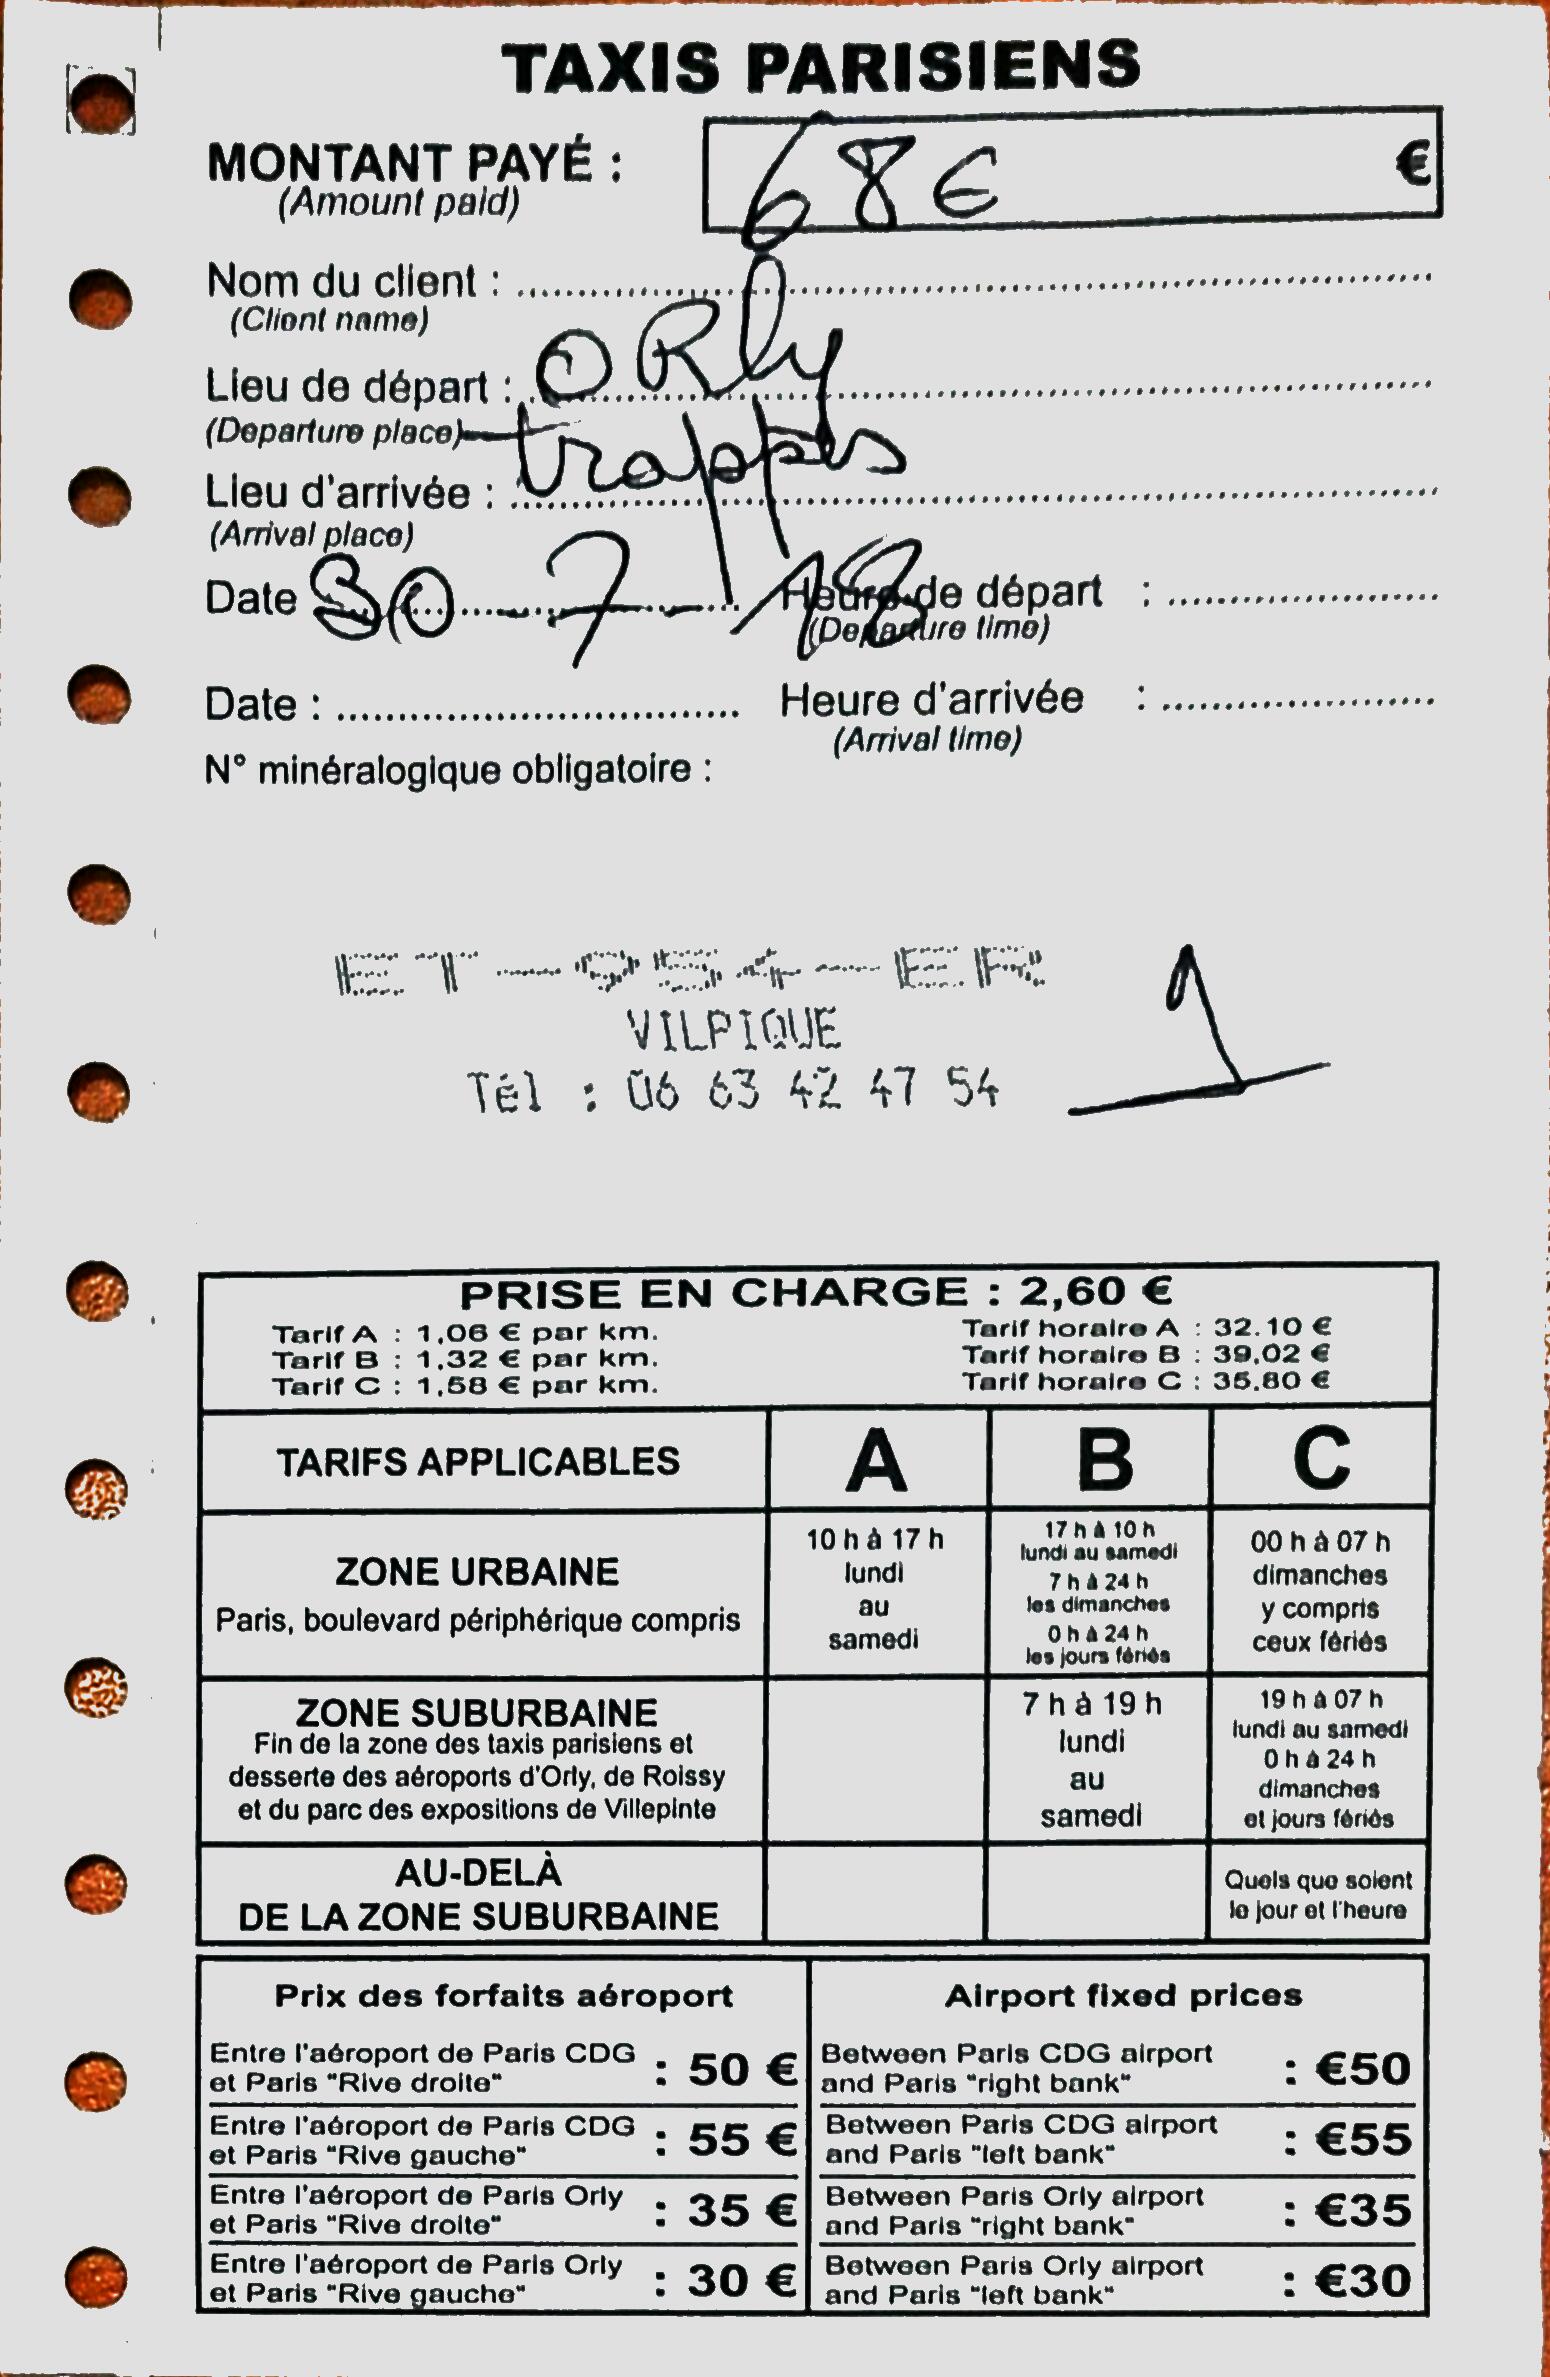 TAXIS PARISIENS
MONTANT PAYÉ : 68 € €
(Amount paid)
Nom du client :
(Client name)
Lieu de départ : ORly
(Departure place)
Lieu d'arrivée : trappes
(Arrival place)
Date 30-7-18 Heure de départ :
(Departure time)
Date : Heure d'arrivée :
(Arrival time)
N° minéralogique obligatoire :
ET-954-ER
VILPIQUE
Tél : 06 63 42 47 54
PRISE EN CHARGE : 2,60 €
Tarif A : 1,06 € par km. Tarif horaire A : 32.10 €
Tarif B : 1,32 € par km. Tarif horaire B : 39,02 €
Tarif C : 1,58 € par km. Tarif horaire C : 35,80 €
TARIFS APPLICABLES A B C
ZONE URBAINE
Paris, boulevard périphérique compris
10 h à 17 h
lundi
au
samedi
17 h à 10 h
lundi au samedi
7 h à 24 h
les dimanches
0 h à 24 h
les jours fériés
00 h à 07 h
dimanches
y compris
ceux fériés
ZONE SUBURBAINE
Fin de la zone des taxis parisiens et
desserte des aéroports d'Orly, de Roissy
et du parc des expositions de Villepinte
7 h à 19 h
lundi
au
samedi
19 h à 07 h
lundi au samedi
0 h à 24 h
dimanches
et jours fériés
AU-DELÀ
DE LA ZONE SUBURBAINE
Quels que soient
le jour et l'heure
Prix des forfaits aéroport
Entre l'aéroport de Paris CDG
et Paris "Rive droite" : 50 €
Entre l'aéroport de Paris CDG
et Paris "Rive gauche" : 55 €
Entre l'aéroport de Paris Orly
et Paris "Rive droite" : 35 €
Entre l'aéroport de Paris Orly
et Paris "Rive gauche" : 30 €
Airport fixed prices
Between Paris CDG airport
and Paris "right bank" : €50
Between Paris CDG airport
and Paris "left bank" : €55
Between Paris Orly airport
and Paris "right bank" : €35
Between Paris Orly airport
and Paris "left bank" : €30